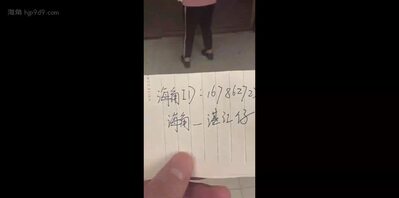 海角 hjp9d9.com
海角ID:16786272
海角_湛江仔